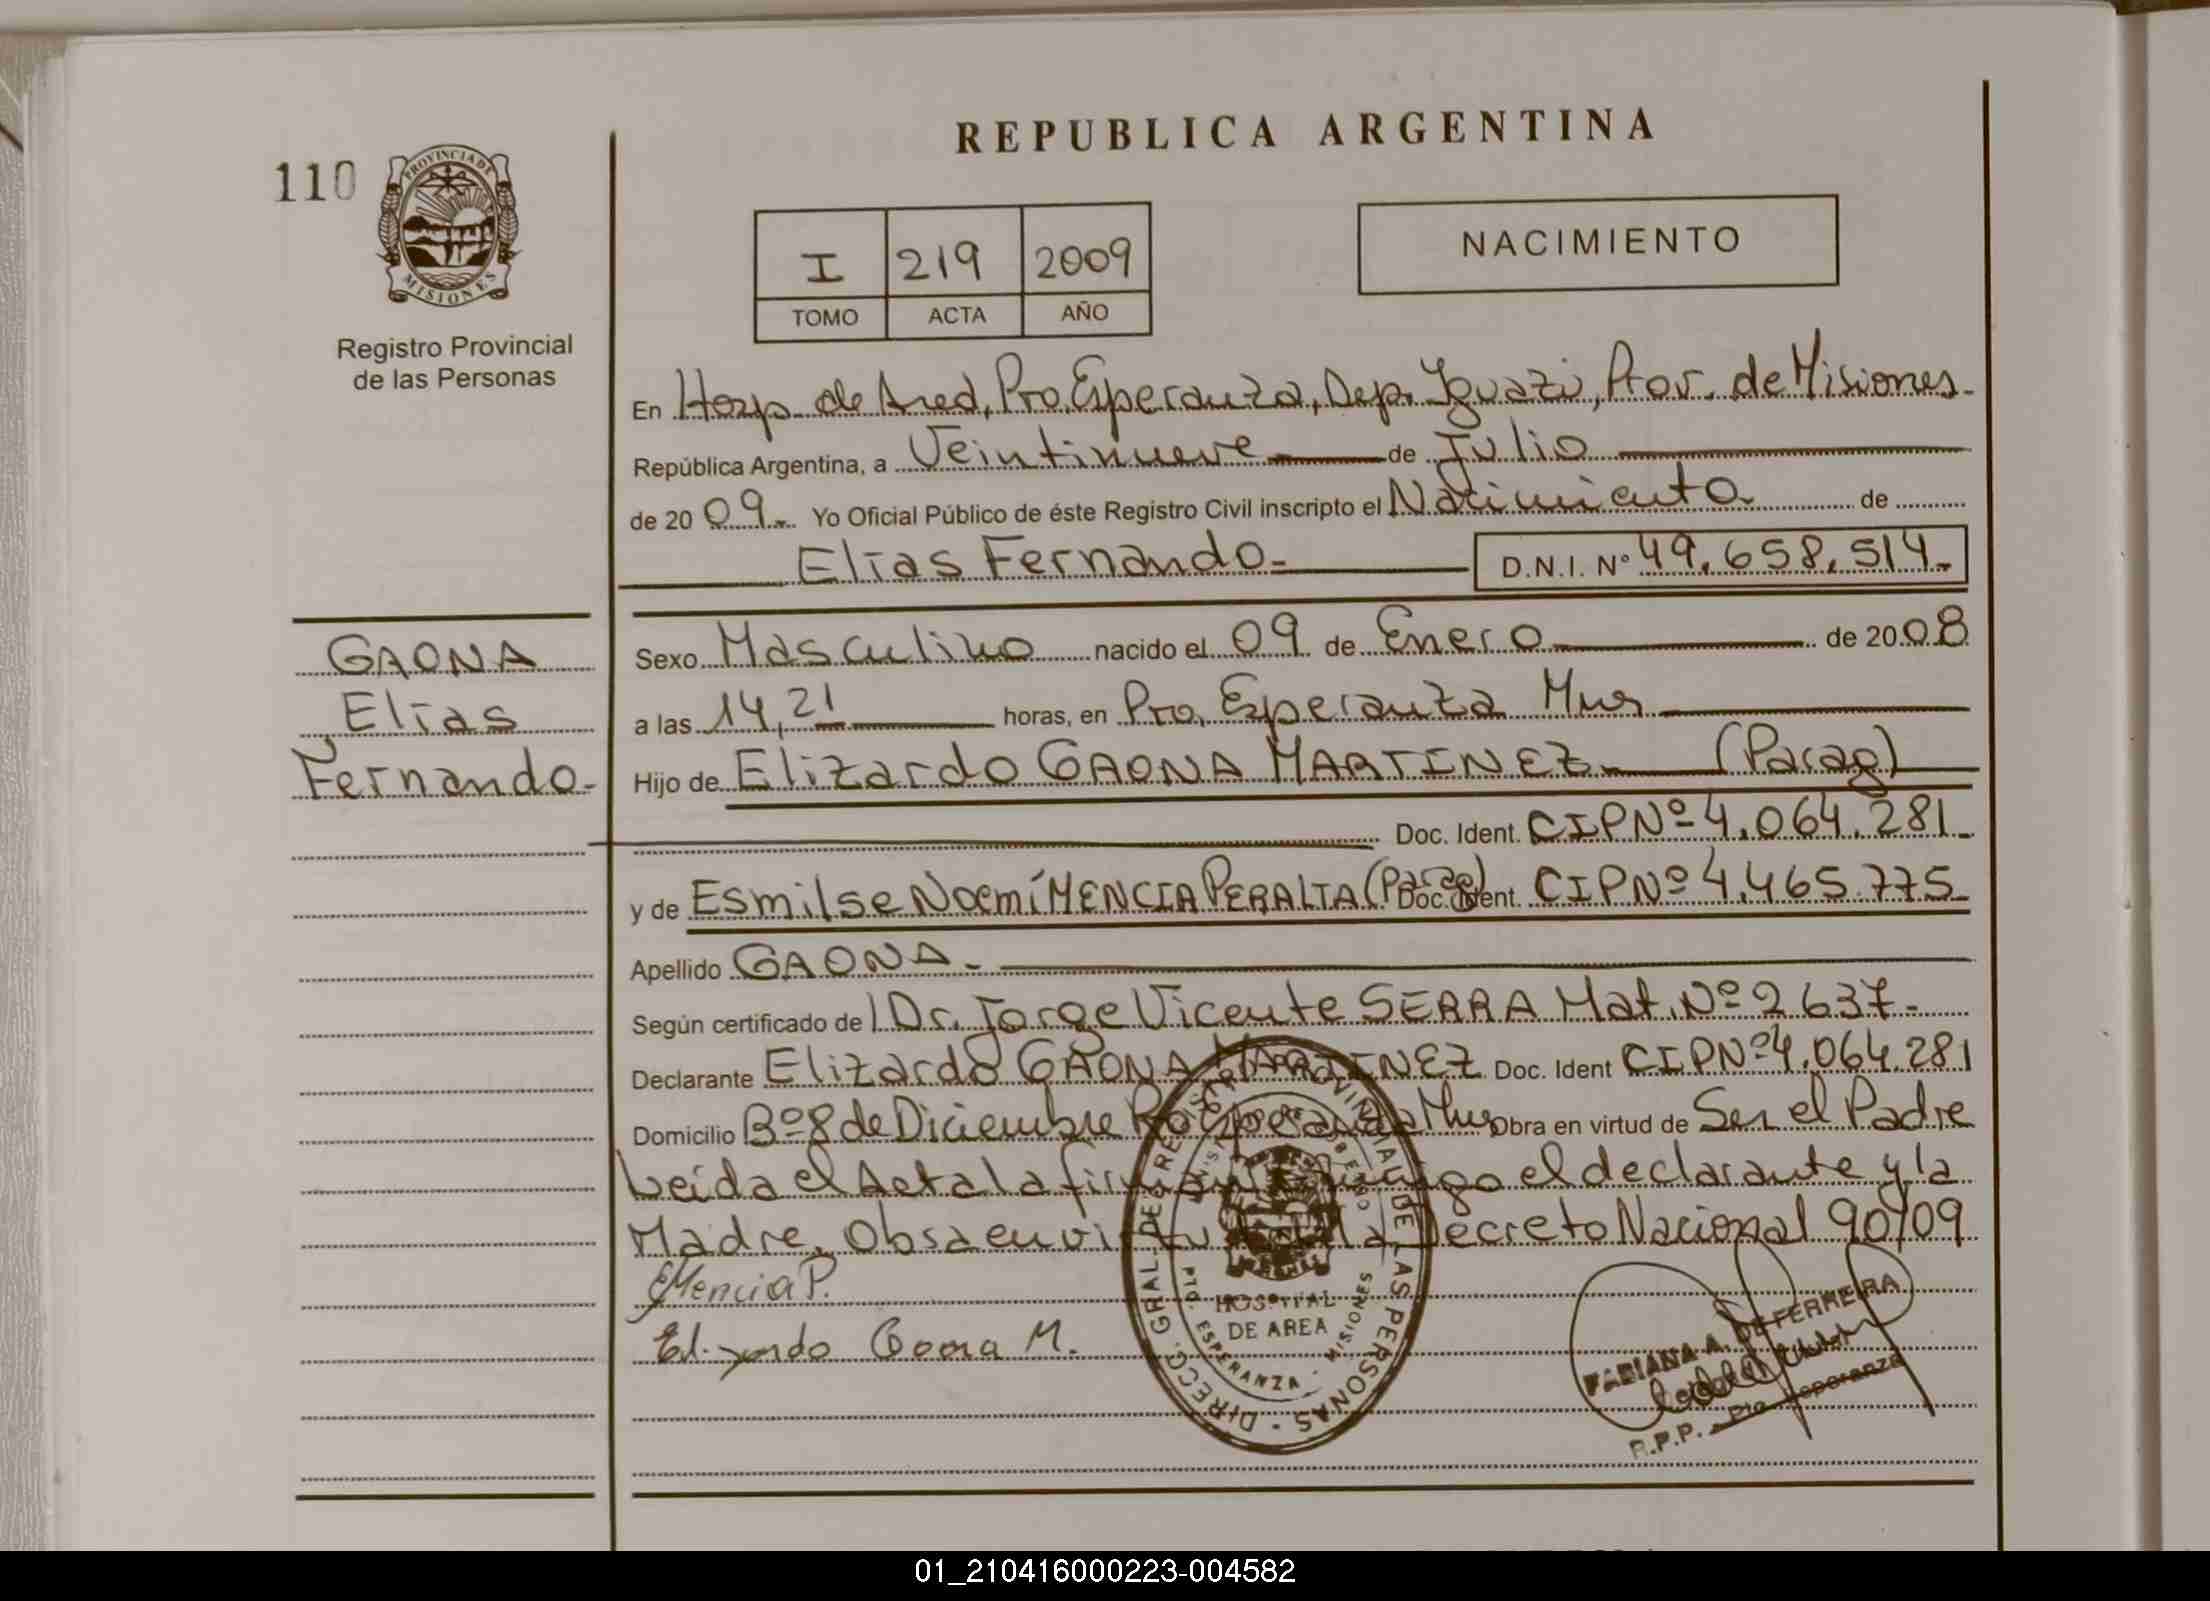 REPUBLICA ARGENTINA
110
PROVINCIA DE
MISIONES
Registro Provincial
de las Personas
I 219 2009
TOMO ACTA AÑO
NACIMIENTO
En Hosp. de Area, Pto. Esperanza, Dep. Iguazú, Prov. de Misiones.
República Argentina, a Veintinueve de Julio
de 2009.- Yo Oficial Público de éste Registro Civil inscripto el Nacimiento. de
Elias Fernando.- D.N.I. Nº 49.658.514.-
GAONA
Elias
Fernando.-
Sexo Masculino nacido el 09 de Enero de 2008
a las 14,21 horas, en Pto. Esperanza Mnes
Hijo de Elizardo GAONA MARTINEZ.- (Parag)
Doc. Ident. CIPNº 4.064.281.-
y de Esmilse Noemí MENCIA PERALTA (Parag) Doc. Ident. CIPNº 4.465.775.-
Apellido GAONA.-
Según certificado del Dr. Jorge Vicente SERRA Mat. Nº 2637.-
Declarante Elizardo GAONA MARTINEZ Doc. Ident CIPNº 4.064.281
Domicilio Bº 8 de Diciembre Pto Esperanza Mnes Obra en virtud de Ser el Padre
Leída el Acta la firman conmigo el declarante y la
Madre. Obra en virtud la Decreto Nacional 90/09
EMencia P.
Elizardo Gaona M.
DIRECC. GRAL. DE REGISTRO PROVINCIAL DE LAS PERSONAS
HOSPITAL
DE AREA
PTO. ESPERANZA - MISIONES
FABIANA A. DE FERREIRA
R.P.P. - Pto. Esperanza
01_210416000223-004582